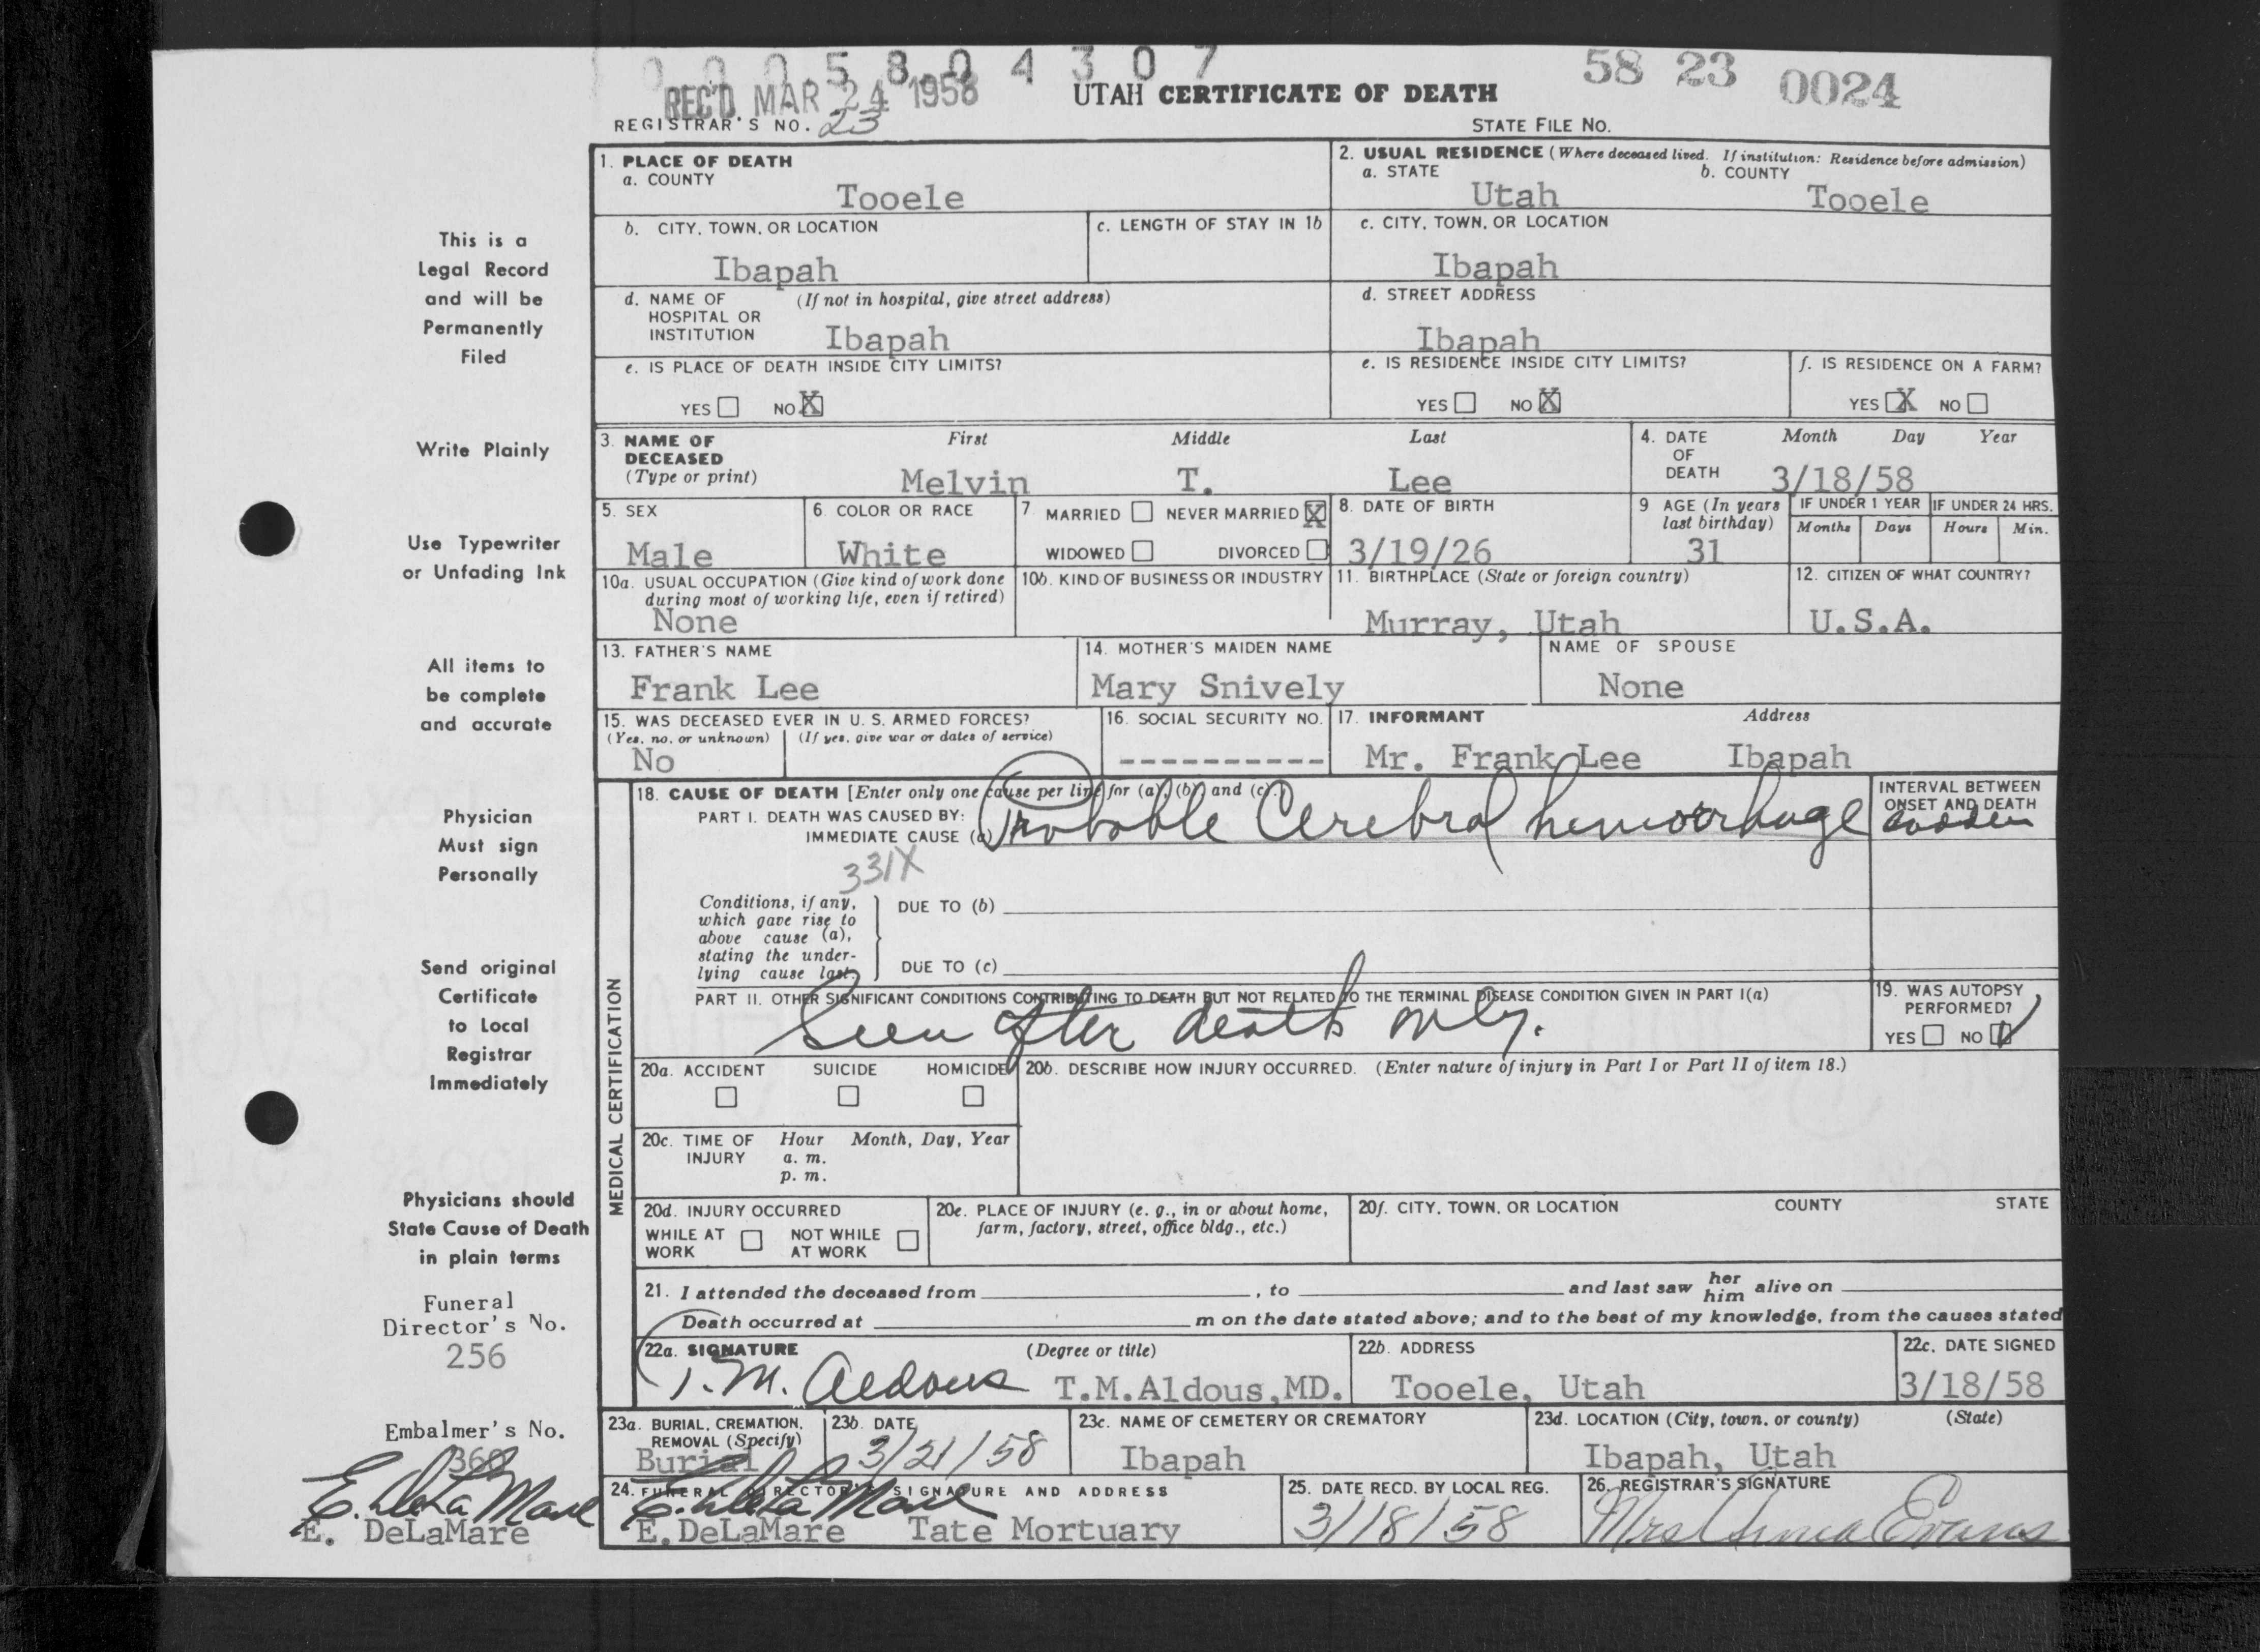 0 0 0 5 8 0 4 3 0 7
58 23 0024
REC'D. MAR 24 1958
UTAH CERTIFICATE OF DEATH
REGISTRAR'S NO. 23
STATE FILE NO.
This is a
Legal Record
and will be
Permanently
Filed
Write Plainly
Use Typewriter
or Unfading Ink
All items to
be complete
and accurate
Physician
Must sign
Personally
Send original
Certificate
to Local
Registrar
Immediately
Physicians should
State Cause of Death
in plain terms
Funeral
Director's No.
256
Embalmer's No.
360
E. DeLaMare
E. DeLaMare
1. PLACE OF DEATH
a. COUNTY
Tooele
2. USUAL RESIDENCE (Where deceased lived. If institution: Residence before admission)
a. STATE b. COUNTY
Utah Tooele
b. CITY, TOWN, OR LOCATION
Ibapah
c. LENGTH OF STAY IN 1b
c. CITY, TOWN, OR LOCATION
Ibapah
d. NAME OF (If not in hospital, give street address)
HOSPITAL OR
INSTITUTION Ibapah
d. STREET ADDRESS
Ibapah
e. IS PLACE OF DEATH INSIDE CITY LIMITS?
YES NO X
e. IS RESIDENCE INSIDE CITY LIMITS?
YES NO X
f. IS RESIDENCE ON A FARM?
YES X NO
3. NAME OF First Middle Last
DECEASED
(Type or print) Melvin T. Lee
4. DATE Month Day Year
OF
DEATH 3/18/58
5. SEX
Male
6. COLOR OR RACE
White
7. MARRIED NEVER MARRIED X
WIDOWED DIVORCED
8. DATE OF BIRTH
3/19/26
9 AGE (In years
last birthday)
31
IF UNDER 1 YEAR
Months Days
IF UNDER 24 HRS.
Hours Min.
10a. USUAL OCCUPATION (Give kind of work done
during most of working life, even if retired)
None
10b. KIND OF BUSINESS OR INDUSTRY
11. BIRTHPLACE (State or foreign country)
Murray, Utah
12. CITIZEN OF WHAT COUNTRY?
U.S.A.
13. FATHER'S NAME
Frank Lee
14. MOTHER'S MAIDEN NAME
Mary Snively
NAME OF SPOUSE
None
15. WAS DECEASED EVER IN U. S. ARMED FORCES?
(Yes, no, or unknown) (If yes, give war or dates of service)
No
16. SOCIAL SECURITY NO.
----------
17. INFORMANT Address
Mr. Frank Lee Ibapah
MEDICAL CERTIFICATION
18. CAUSE OF DEATH [Enter only one cause per line for (a), (b) and (c).]
PART I. DEATH WAS CAUSED BY:
IMMEDIATE CAUSE (a) Probable Cerebral hemorrhage
INTERVAL BETWEEN
ONSET AND DEATH
sudden
331X
Conditions, if any,
which gave rise to
above cause (a),
stating the under-
lying cause last.
DUE TO (b)
DUE TO (c)
PART II. OTHER SIGNIFICANT CONDITIONS CONTRIBUTING TO DEATH BUT NOT RELATED TO THE TERMINAL DISEASE CONDITION GIVEN IN PART I(a)
Seen after death only.
19. WAS AUTOPSY
PERFORMED?
YES NO
20a. ACCIDENT SUICIDE HOMICIDE
20b. DESCRIBE HOW INJURY OCCURRED. (Enter nature of injury in Part I or Part II of item 18.)
20c. TIME OF Hour Month, Day, Year
INJURY a. m.
p. m.
20d. INJURY OCCURRED
WHILE AT NOT WHILE
WORK AT WORK
20e. PLACE OF INJURY (e. g., in or about home,
farm, factory, street, office bldg., etc.)
20f. CITY, TOWN, OR LOCATION COUNTY STATE
21. I attended the deceased from , to and last saw her him alive on
Death occurred at m on the date stated above; and to the best of my knowledge, from the causes stated
22a. SIGNATURE (Degree or title)
T. M. Aldous T.M.Aldous,MD.
22b. ADDRESS
Tooele, Utah
22c. DATE SIGNED
3/18/58
23a. BURIAL, CREMATION,
REMOVAL (Specify)
Burial
23b. DATE
3/21/58
23c. NAME OF CEMETERY OR CREMATORY
Ibapah
23d. LOCATION (City, town, or county) (State)
Ibapah, Utah
24. FUNERAL DIRECTOR'S SIGNATURE AND ADDRESS
E. DeLaMare
E.DeLaMare Tate Mortuary
25. DATE RECD. BY LOCAL REG.
3/18/58
26. REGISTRAR'S SIGNATURE
Mrs Evans